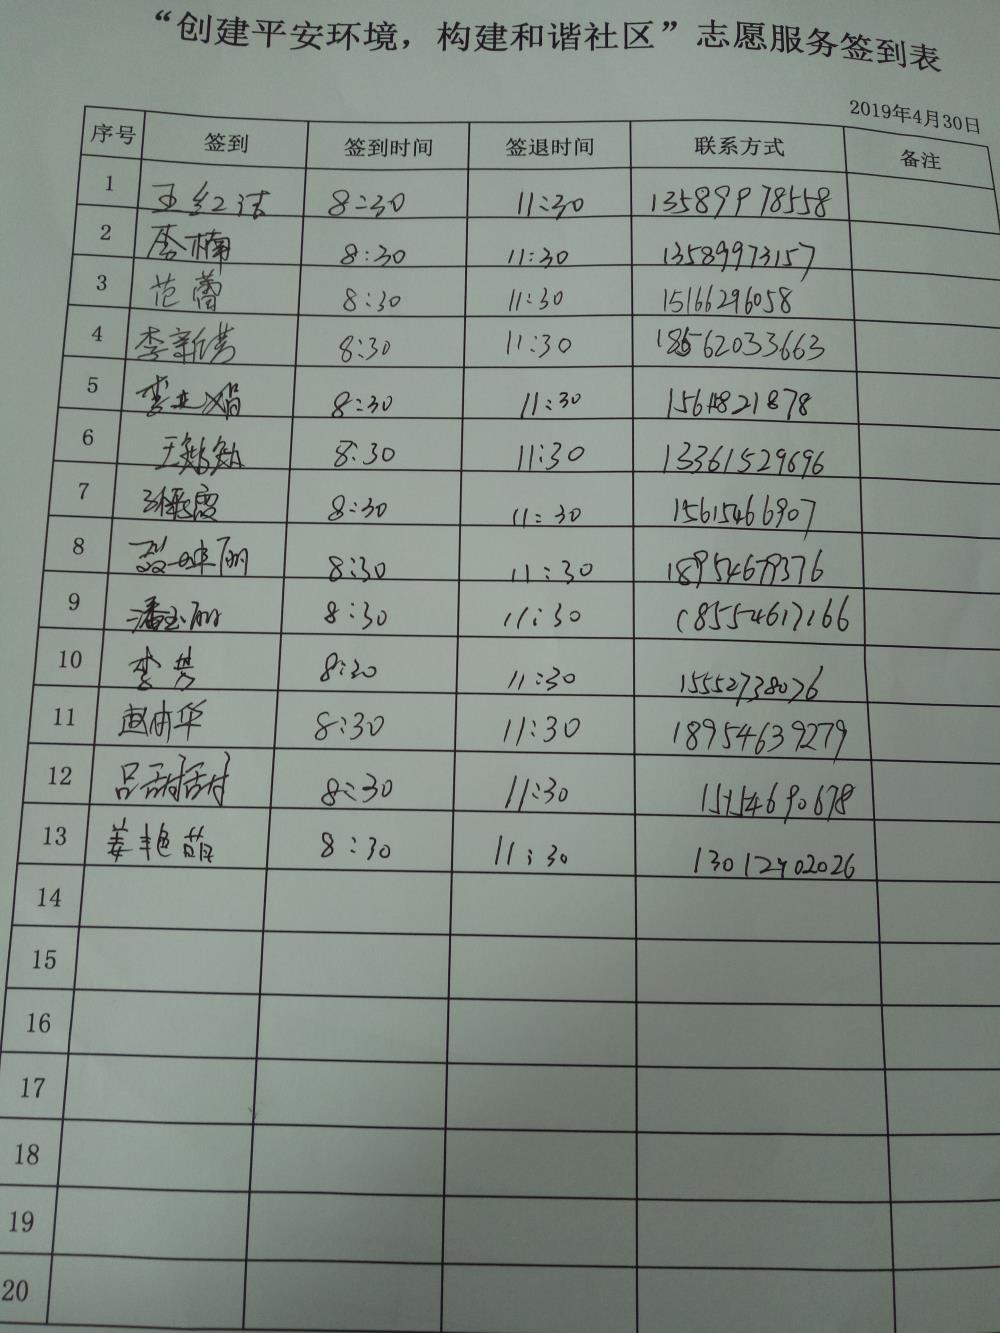 “创建平安环境，构建和谐社区”志愿服务签到表
2019年4月30日
序号 签到 签到时间 签退时间 联系方式 备注
1 王红洁 8:30 11:30 13589978558
2 李楠 8:30 11:30 13589973157
3 范蕾 8:30 11:30 15166296058
4 李新 8:30 11:30 18562033663
5 李亚娟 8:30 11:30
6 王 8:30 11:30 13361529696
7 霞 8:30 11:30 15615466907
8 丽 8:30 11:30 18954679376
9 潘玉丽 8:30 11:30 18554617166
10 李芳 8:30 11:30 15552738076
11 赵 华 8:30 11:30 18954639279
12 吕甜甜 8:30 11:30 15154690678
13 姜艳萌 8:30 11:30 13012702026
14
15
16
17
18
19
20